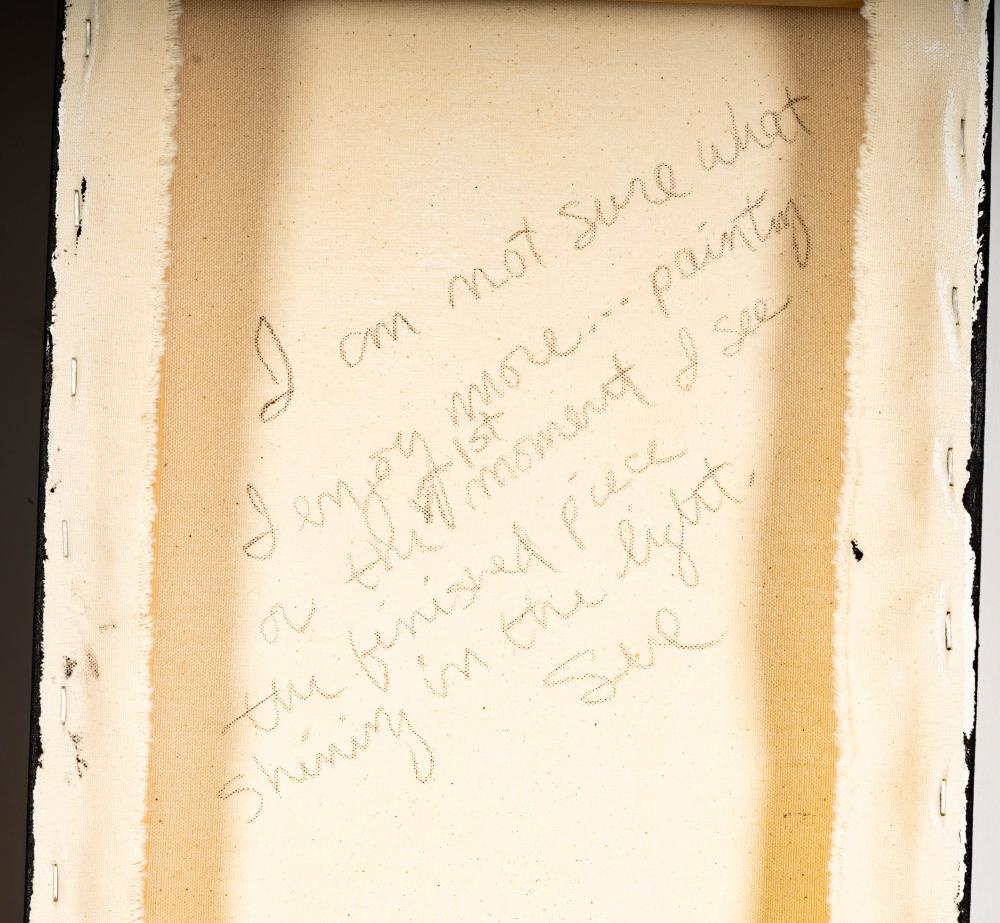 I am not sure what
I enjoy more... painting
or the 1st moment I see
the finished piece
shining in the light.
Sue